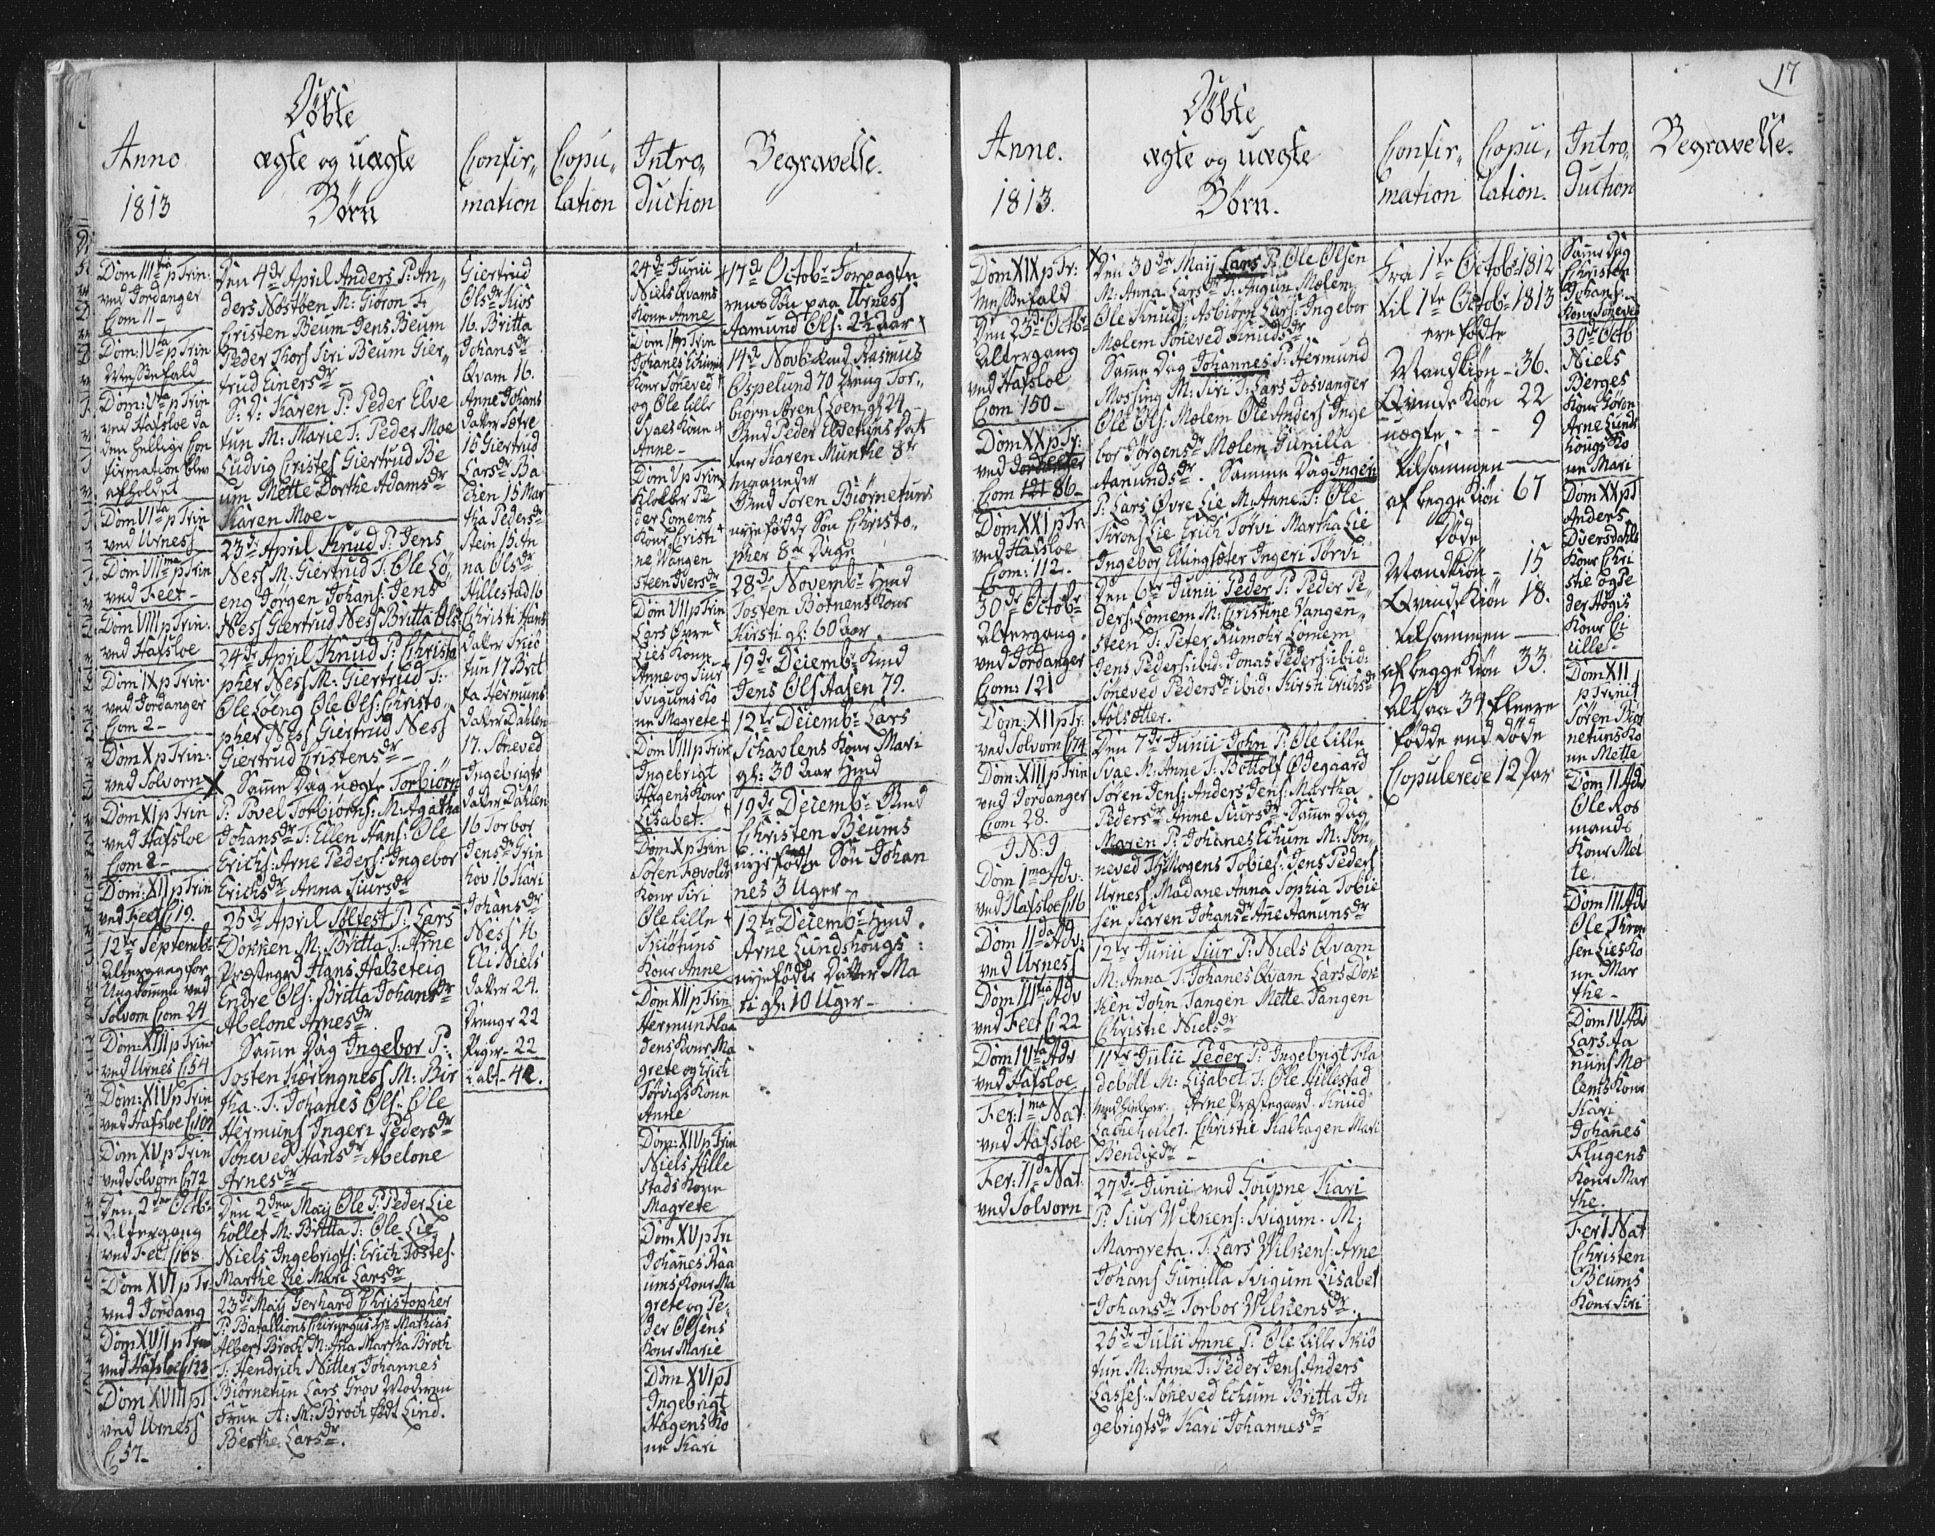 Anno
1813
Döbte
ægte og uægte
Börn
Confir-
mation
Copu-
lation
Intro-
duction
Begravelse.
Dom IIItia p Trin:
ved Jordanger
Com 11-
Dom: IVta p Trin
Messefald
Dom: Vta p Trin
ved Hafsloe da
den hellige Con
firmation blev
afholdet
Dom VIta p Trin
ved Urness
Dom VIIma p Trin
ved Feet-
Dom VIII p Trin
ved Hafsloe
Dom IX p Trin-
ved Jordanger
Com 2-
Dom X p Trin-
ved Solvorn-
Dom XI p Trin
ved Hafsloe
Com 2-
Dom: XII p Trin
ved Feet C 19.
12te Septemb:
Altergang for
Ungdommen ved
Solvorn Com 24
Dom: XIII p Trin
ved Urnes C 54
Dom: XIV p Trin
ved Hafsloe C 107
Dom XV p Trin
ved Solvorn C 72
Den 2den Octb:
Altergang
ved Feet C 68
Dom XVI p Tr.
ved Jordang
Dom XVII p Trin
ved Hafsloe C 123
Dom XVIII p T
ved Urness
C 57-
Den 4de April Anders P: An-
ders Nöstöen M: Gioron T:
Cristen Beum Jens Beum
Peder Thors Siri Beum Gier-
trud Einersdr
S: D: Karen P: Peder Elve
tun M: Marie T: Peder Moe
Ludvig Cristes Giertrud Be
um Mette Dorthe Adamsdr
Karen Moe-
23de April Knud P: Jens
Ness M: Giertrud T: Ole Lö-
eng Jörgen Johans: Jens
Ness Giertrud Ness Britta Olsdr
24de April Knud P: Christo
pher Ness M: Giertrud T:
Ole Loeng Ole Ols: Christo
pher Ness Giertrud Ness
Giertrud Cristensdr
X Samme Dag uægte Torbiörn
P: Povel Torbiörns: M: Agatha
Johansdr T: Ellen Hans: Ole
Erichs: Arne Peders: Ingebor
Erichsdr Anna Siursdr
25de April Söltest P: Lars
Dokken M: Britta T: Arne
Præstegrd Hans Halzeteig
Endre Ols: Britta Johansdr
Abelone Arnesdr
Samme Dag Ingebor P:
Tosten Kæringness M: Bir
tha. T: Johanes Ols: Ole
Hermuns Ingeri Pedersdr
Söneved Hansdr Abelone
Arnesdr
Den 2den May Ole P: Peder Lie
hollet M: Britta T: Ole Lie
Niels Ingebrigts: Erich Jostes
Marthe Lie Mari Larsdr
23de May Gerhard Christopher
P: Batallions Chirurgus Hr Mathias
Albert Broch M: Ana Martha Broch
T: Hendrich Nitter Johannes
Biörnetun Lars Grov Modrene
Frue A: M: Broch födt Lind.
Berthe Larsdr.
Giertrud
Olsdr Kios
16. Britta
Johansdr
Qvam 16.
Anne Johans
datter Sætre
15 Giertrud
Larsdr Ba
chen 15 Mar
tha Pedersdr
Stein 15 An
na Olsdr
Hillestad 16
Christi Hans
datter Friö
tun 17 Brit
ta Hermuns
datter Dahlen
17. Söneved
Ingebrigts
datter Dahlen
16 Torbor
Jensdr Grin
hov 16 Kari
Johansdr
Ness 16
Eli Niels
datter 24.
Drenge 22
Piger- 22
i alt- 44.
24de Junii
Niels Qvams
Kone Anne
Dom II p Trin
Johanes Echums
Kone Söneved
og Ole Lille
Svaes Kone
Anne-
Dom V p Trin
Klokker Pe
der Lomems
Kone Cristi
ne Wangen
steen Iversdr
Dom VII p Trin
Lars Övre
Lies Kone
Anne og Siur
Svigums Ko
ne Magrete
Dom VIII p Trin
Ingebrigt
Hagens Kone
Lisabet.
Dom X p Trin
Sören Fævolds
Kone Siri
Ole Lille
Kriötuns
Kone Anne
Dom XII p Trin
Hermun Flaa
dens Kone Ma
grete og Erich
Törvigs Kone
Anne
Dom: XIV p Trin
Niels Hille
stads Kone
Magrete
Dom XV p Tri
Johanes Raa
ums Kone Ma
grete og Pe-
der Olsens
Kone Marie
Dom XVI p T
Ingebrigt
Hagens Ko
ne Kari
17de Octob: Forpagte-
renes Sön paa Urness
Aamund Ols: 2½ Aar
14de Novb: Knud Rasmus
Espelund 70 Dreng Tor-
biörn Sörens Loen gl: 24
Knd Peder Eldetuns Dat
ter Karen Munthe 8te
maaneder
Knd Sören Biörnetuns
nye födde Sön Christo-
pher 8te Dage
28de Novembr Hmd
Tosten Botnens Kone
Kirsti gl: 60 Aar
19de Decemb: Kind
Jens Ols Aasen 79.
12te Decembr Lars
Schavlens Kone Mari
gl: 30 Aar Hmd
19de Decembr Kmd
Christen Beums
nye födte Sön Johan
nes 3 Uger-
12te Decembr Hmd.
Arne Lundshougs
nyefödte Datter Ma
ti gl: 10 Uger-
17
Anno.
1813.
Döbte
ægte og uægte
Börn.
Confir-
mation
Copu-
lation.
Intro-
duction
Begravelse.
Dom XIX p Tr:
Messefald
Den 23de Octb:
Altergang
ved Hafsloe
Com 150-
Dom XX p Tr:
ved Jordanger
Com 121 86-
Dom XXI p Tr:
ved Hafsloe
Com: 112.
30de Octobr
Altergang.
ved Jordanger
Com: 121
Dom: XII p Tr:
ved Solvorn C 74
Dom: XIII p Trin
ved Jordanger
Com 28.
I N I
Dom 1ma Adv:
ved Hafsloe C 16
Dom IIda Adv:
ved Urness
Dom IIItia Adv
ved Feet C 22
Dom IVta Adv
ved Hafsloe
Fer: 1ma Nat:
ved Hafsloe
Fer: IIda Nat.
ved Solvorn
X Den 30de May Lars P: Ole Olsen
M: Anna Larsdr T: Augun Molem
Ole Knuds: Asbiörn Lars: Ingebor
Molem Söneved Knudsdr
Samme Dag Johannes P: Hermund
Mossing M: Siri T: Lars Josvanger
Ole Ols: Molem Ole Anders Inge
bor Jörgensdr Molem Gunilla
Aamundsdr. Samme Dag Ingeri
P: Lars Övre Lie M: Anne T: Ole
Throns Lie Erich Torvi Martha Lie
Ingebor Ellingsæter Ingeri Törvi
Den 6te Junii Peder P: Peder Pe-
ders: Lomem M: Christine Vangen-
steen T: Peter Rumohr Lomem
Jens Peders: ibid: Jonas Peders: ibid:
Söneved Pedersdr ibid. Kirsti Erichsdr
Holsetter.
Den 7de Junii John P: Ole Lille
Svae M: Anne T: Bottolf Ödegaard
Sören Jens: Anders Jens: Martha
Pedersdr Anne Siursdr Samme Dag
Maren P: Johanes Echum M: Sön-
neved T: Mogens Tobies: Jens Peders
Urness. Madane Anna Sophia Tobie
sen Karen Johansdr Ane Hanunsdr
12te Junii Siur P: Niels Qvam
M: Anna T: Johanes Qvam Lars Dok
ken John Tangen Mette Tangen
Christie Nielsdr
11te Julii Peder P: Ingebrigt Fla
deböll M: Lisabet T: Ole Hillestad
Arne Præstegaard Knud
Christie Kalhagen Mari
Bendixdr -
27de Junii ved Goupne Kari
P: Siur Wilkens: Svigum. M:
Margreta. T: Lars Wilkens: Arne
Johans Gunilla Svigum Lisabet
Johansdr Torbor Wilkensdr
25de Julii Anne P: Ole Lille Friö
tun M: Anne T: Peder Jens Anders
Lasses: Söneved Echum Britta In
gebrigtsdr Kari Johannesdr
Fra 1te Octob: 1812
til 1te Octobr 1813
ere födte
Mandkiön - 36.
Qvinde Kiön 22
uægte - - - 9
tilsammen
af begge Kiön 67
Döde
Mandkiön - 15
Qvinde Kiön 18.
tilsammen
af begge Kiön 33.
Altsaa 34 fleere
födde end döde
Copulerede 12 Par
Samme Dag
Christen
Johans:
Kone Söneved
30de Octb
Niels
Berges
Kone Gören
Arne Lunds
hougs Ko
ne Mari
Dom XX p T
Anders
Dversdahls
Kone Chri
stie og Pe
der Högis
Kone Ci
cille-
Dom XII
p Trinit
Sören Biör
netuns Ko
ne Mette
Dom II Adv
Ole Ros
mands
Kone Met
te.
Dom III Adv
Ole Thron
sen Lies Ko
ne Mar
the-
Dom IV Adv
Lars Aa
nuns Mo
lems Kone
Kari
Johanes
Flugens
Kone Mar
the.
Fer I Nat
Christen
Beums
Kone Siri